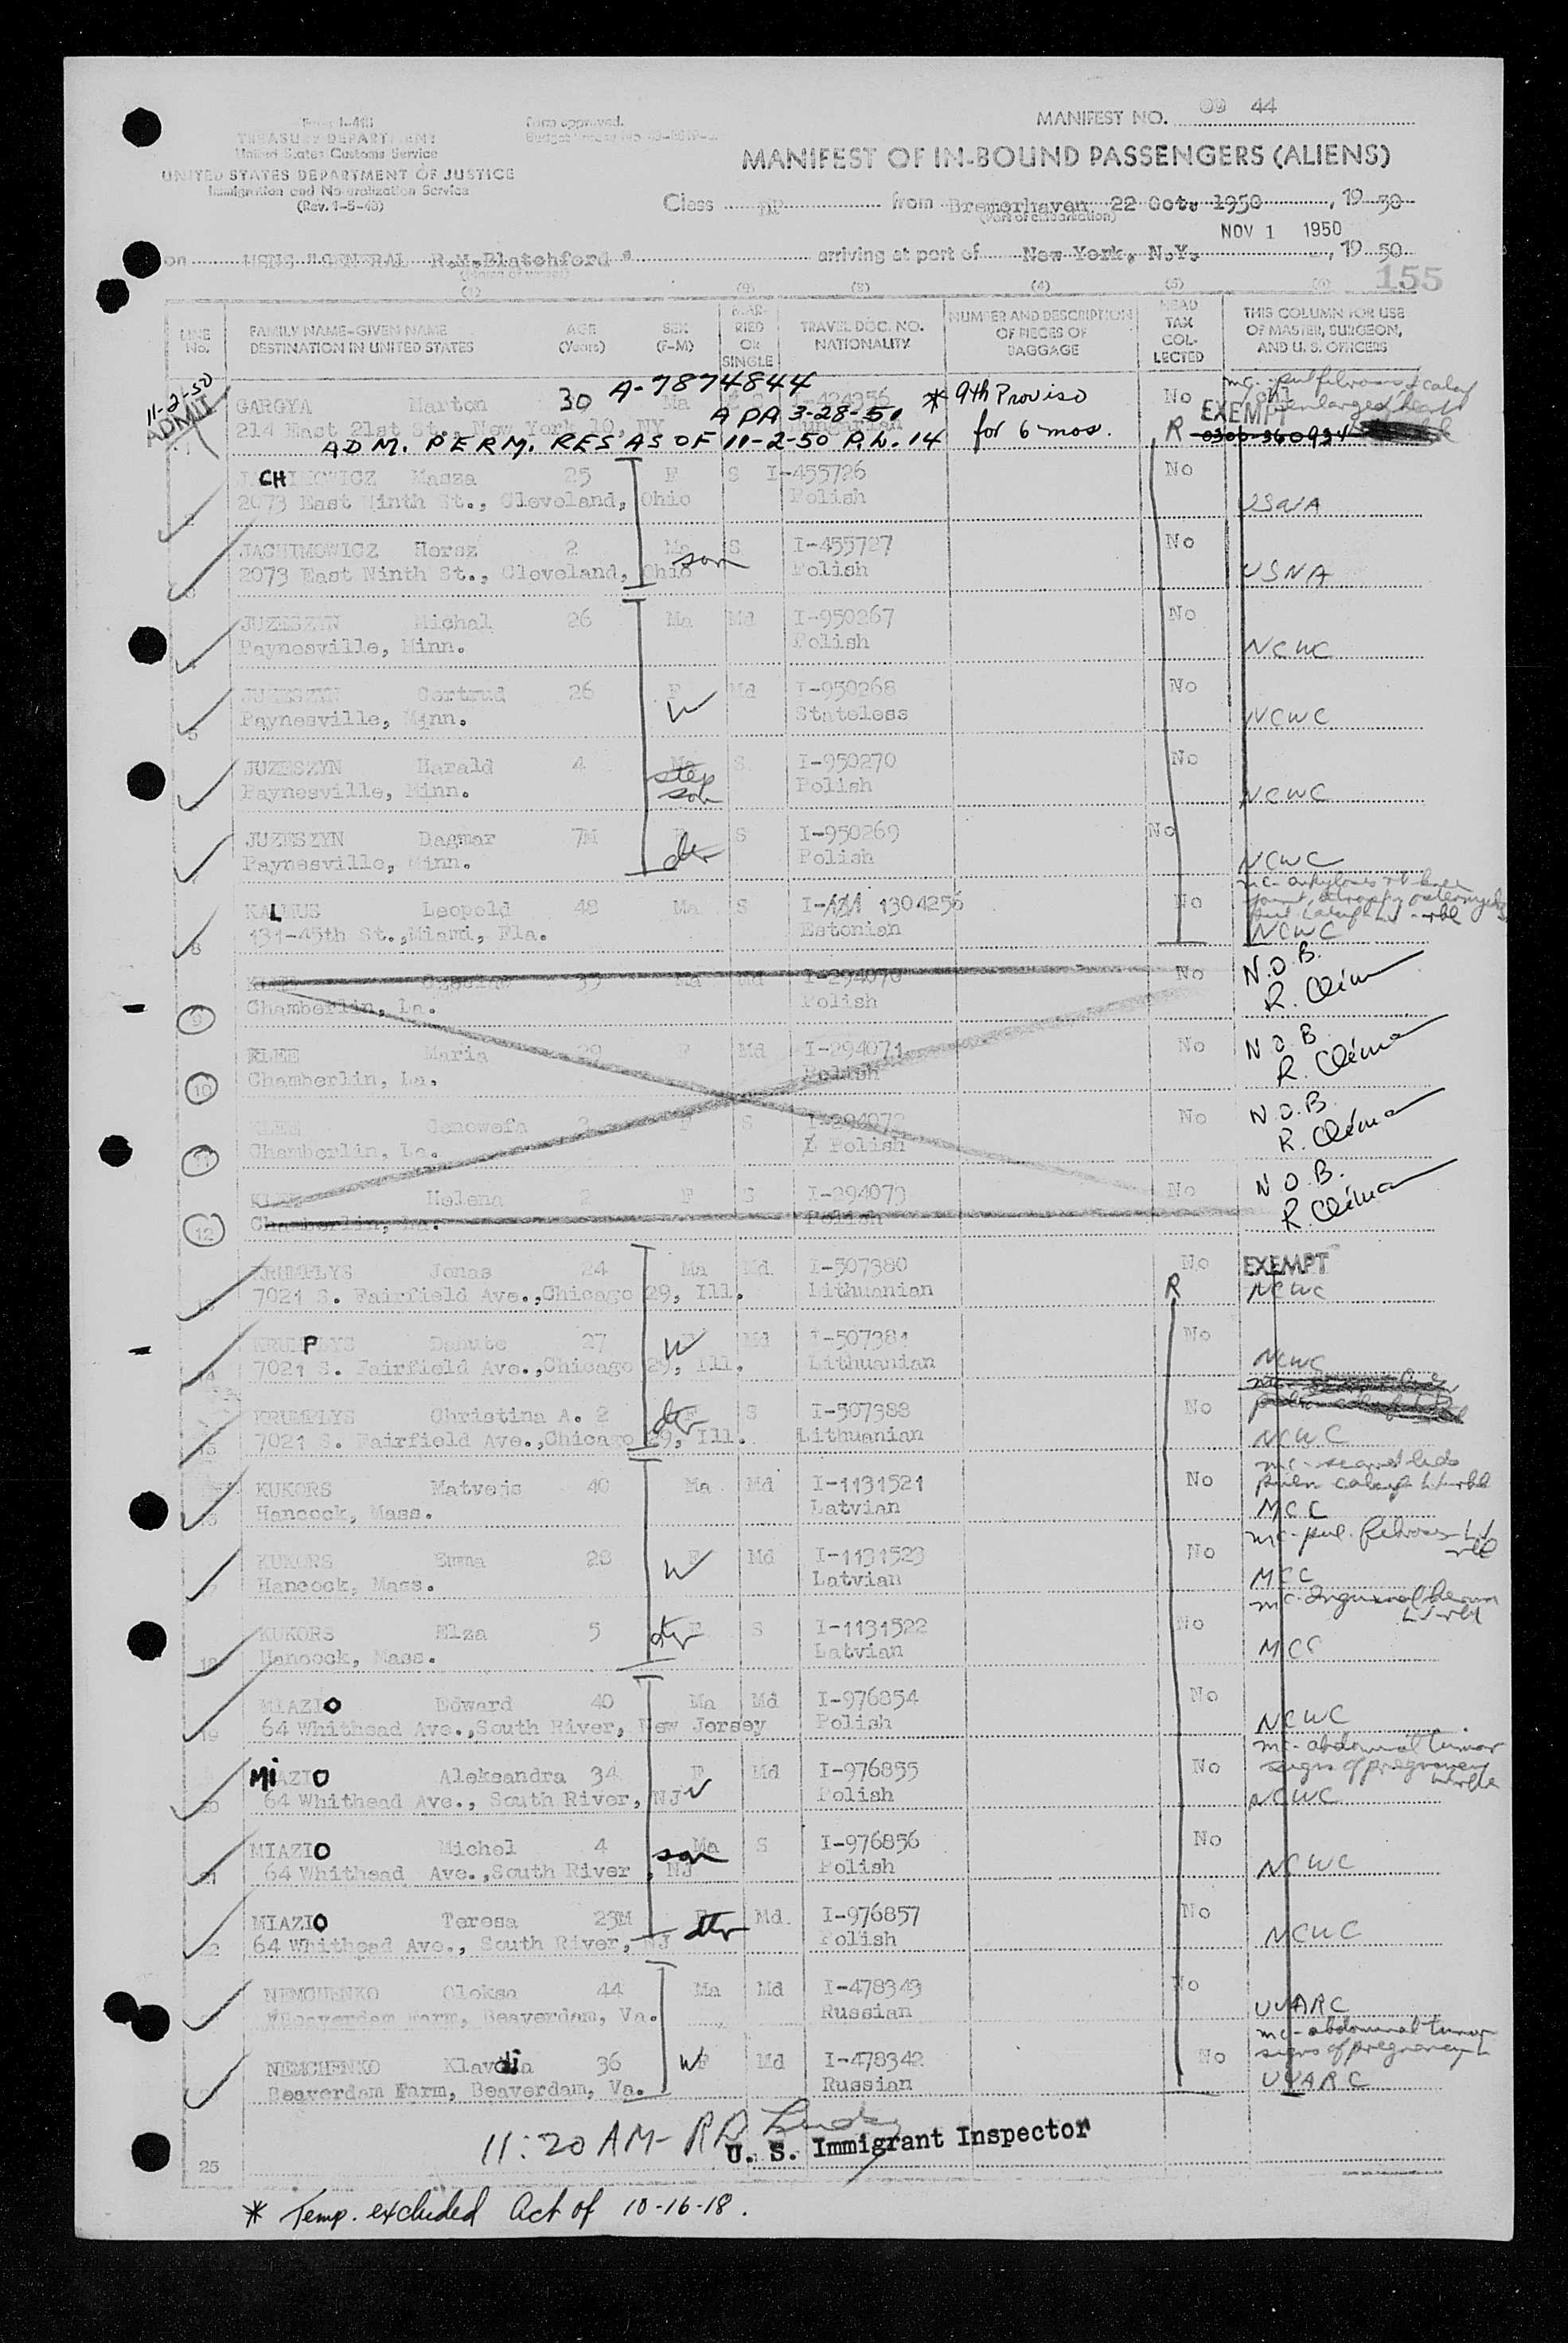 MANIFEST NO. 09 44
Form I-418
TREASURY DEPARTMENT
United States Customs Service
UNITED STATES DEPARTMENT OF JUSTICE
Immigration and Naturalization Service
(Rev. 1-5-48)
Form approved.
MANIFEST OF IN-BOUND PASSENGERS (ALIENS)
Class DP from Bremerhaven 22 Oct. 1950, 1950
(Port of embarkation)
NOV 1 1950
on USNS "GENERAL R.M.Blatchford" arriving at port of New York, N.Y., 1950
155
LINE No.
FAMILY NAME-GIVEN NAME
DESTINATION IN UNITED STATES
AGE (Years)
SEX (F-M)
MARRIED OR SINGLE
TRAVEL DOC. NO. NATIONALITY
NUMBER AND DESCRIPTION OF PIECES OF BAGGAGE
HEAD TAX COLLECTED
THIS COLUMN FOR USE OF MASTER, SURGEON, AND U. S. OFFICERS
11-2-50 ADMIT
GARGYA Marton 30 A-7874844 Ma I-424356 * 9th Proviso No
214 East 21st St., New York 10, NY APA 3-28-51 Hungarian for 6 mos. R EXEMPT 0300-360934
ADM. PERM. RES AS OF 11-2-50 P.L. 14
JACHIMOWICZ Masza 25 F S I-455726 No
2073 East Ninth St., Cleveland, Ohio Polish USNA
JACHIMOWICZ Hersz 2 Ma son S I-455727 No
2073 East Ninth St., Cleveland, Ohio Polish USNA
JUZESZYN Michal 26 Ma Md I-950267 No
Paynesville, Minn. Polish NCWC
JUZESZYN Gertrud 26 F W Md I-950268 No
Paynesville, Minn. Stateless NCWC
JUZESZYN Harald 4 Ma step son S I-950270 No
Paynesville, Minn. Polish NCWC
JUZESZYN Dagmar 7M F dtr S I-950269 No
Paynesville, Minn. Polish NCWC
KALMUS Leopold 48 Ma S I- 1304256 No
8 131-45th St., Miami, Fla. Estonian NCWC
KLEE 39 Ma Md I-294070 No N.O.B.
9 Chamberlin, La. Polish
KLEE Maria 29 F Md I-294071 No N.O.B.
10 Chamberlin, La. Polish
KLEE Genowefa 3 F S I-294072 No N.O.B.
11 Chamberlin, La. Polish
KLEE Helena 2 F S I-294073 No N.O.B.
12 Chamberlin, La. Polish
KRUMPLYS Jonas 24 Ma Md. I-507380 No EXEMPT
7021 S. Fairfield Ave.,Chicago 29, Ill. Lithuanian R NCWC
KRUMPLYS Danute 27 W Md I-507381 No
7021 S. Fairfield Ave.,Chicago 29, Ill. Lithuanian NCWC
KRUMPLYS Christina A. 2 F dtr S I-507388 No
15 7021 S. Fairfield Ave.,Chicago 29, Ill. Lithuanian NCWC
KUKORS Matvejs 40 Ma Md I-1131521 No
Hancock, Mass. Latvian MCC
KUKORS Emma 28 F W Md I-1131523 No
Hancock, Mass. Latvian MCC
KUKORS Elza 5 F dtr S I-1131522 No
18 Hancock, Mass. Latvian MCC
MIAZIO Edward 40 Ma Md I-976854 No
19 64 Whithead Ave.,South River, New Jersey Polish NCWC
mc-abdominal tumor signs of pregnancy
MIAZIO Aleksandra 34 F W Md I-976855 No
20 64 Whithead Ave., South River, NJ Polish NCWC
MIAZIO Michel 4 Ma son S I-976856 No
21 64 Whithead Ave.,South River, NJ Polish NCWC
MIAZIO Teresa 23M F dtr Md. I-976857 No
64 Whithead Ave., South River, NJ Polish NCWC
NEMCHENKO Oleksa 44 Ma Md I-478343 No
Beaverdam Farm, Beaverdam, Va. Russian UUARC
mc-abdominal tumor signs of pregnancy
NEMCHENKO Klavdia 36 F W Md I-478342 No
Beaverdam Farm, Beaverdam, Va. Russian UUARC
11:20 AM-
U. S. Immigrant Inspector
25
* Temp. excluded Act of 10-16-18.